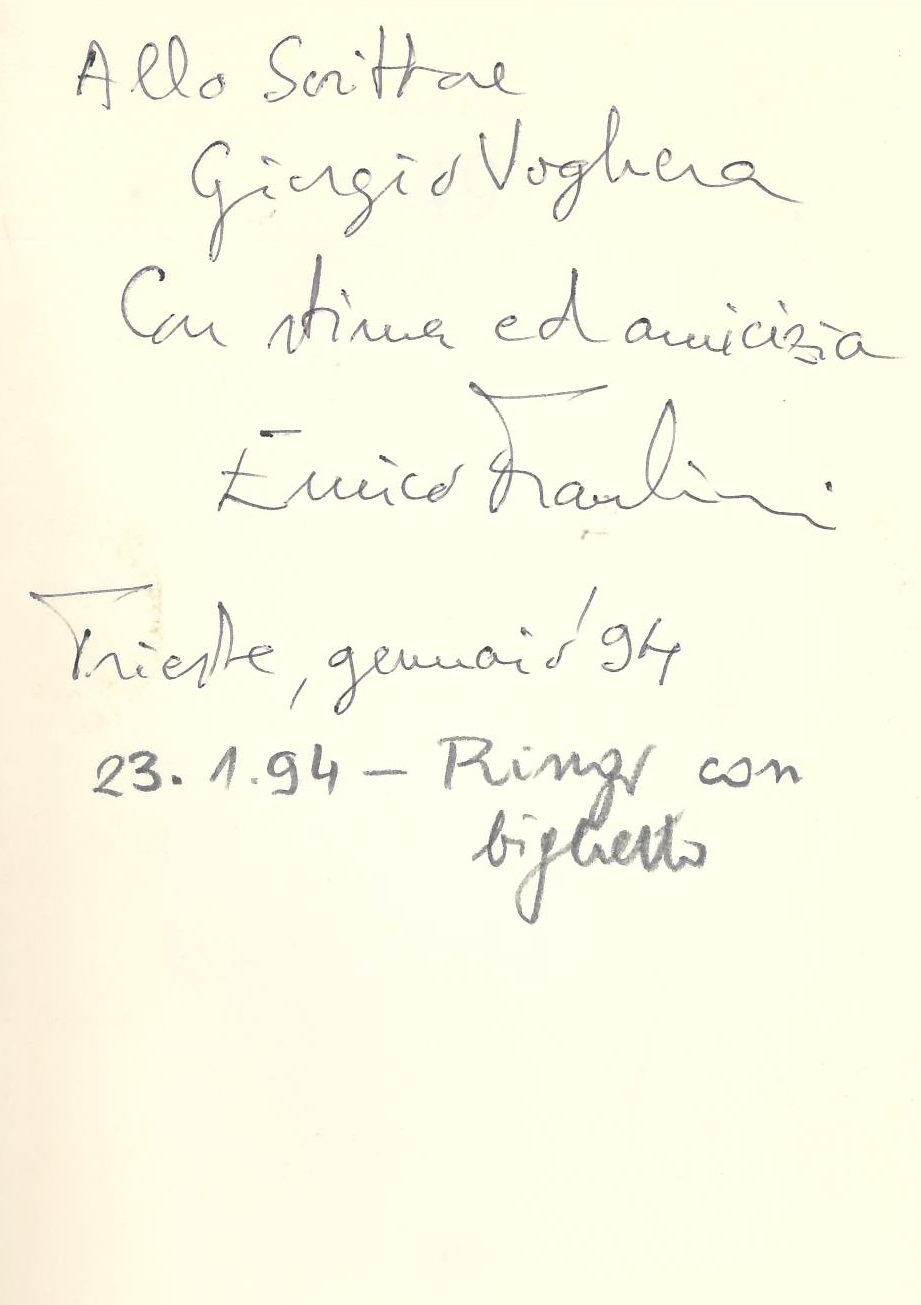 Allo Scrittore
Giorgio Voghera
Con stima ed amicizia
Enrico Fraulini
Trieste, gennaio '94
23.1.94 – Ringr con
biglietto